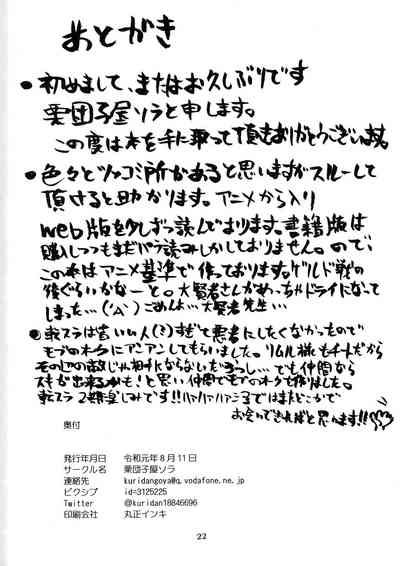 あとがき
● 初めまして、またはお久しぶりです
栗団子屋ソラと申します。
この度は本を手に取って頂きありがとうございます。
● 色々とツッコミ所があると思いますがスルーして
頂けると助かります。アニメから入り
web版を少しずつ読んでおります。書籍版は
購入しつつもまだパラ読みしかしておりません。ので、
この本はアニメ基準で作っております。ゲルド戦の
後ぐらいかなーと。大賢者さんがめっちゃドライになって
しまった…('A`)ごめんよ…大賢者先生…
● 転スラは皆いい人(?)すぎて悪者にしたくなかったもので
モブのオークにアンアンしてもらいました。リムル様もチートだから
そのへの敵じゃ相手にならないだろうし…でも仲間なら
スキが出来るかも!と思い仲間でモブのオークを作りました。
転スラ2期楽しみです!!ハァハァハァではまたどこかで
お会いできればと思います!!
奥付
発行年月日 令和元年8月11日
サークル名 栗団子屋ソラ
連絡先 kuridangoya@q.vodafone.ne.jp
ピクシブ id=3125225
Twitter @kuridan18846696
印刷会社 丸正インキ
22